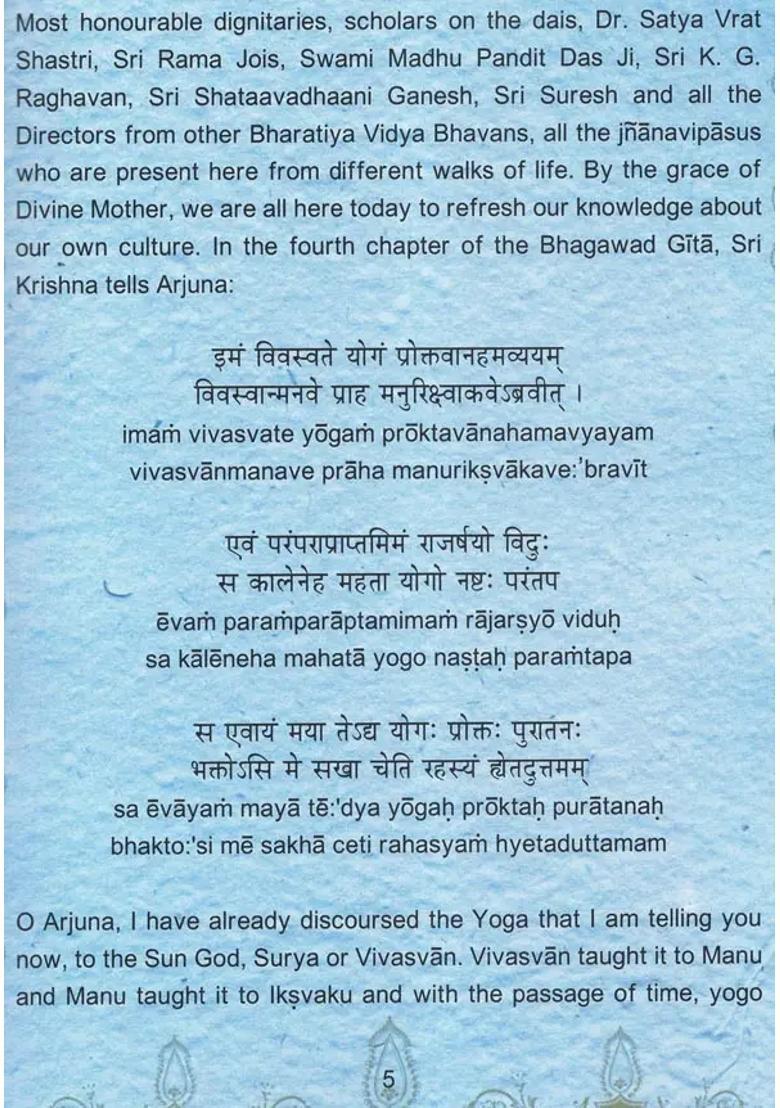 Most honourable dignitaries, scholars on the dais, Dr. Satya Vrat
Shastri, Sri Rama Jois, Swami Madhu Pandit Das Ji, Sri K. G.
Raghavan, Sri Shataavadhaani Ganesh, Sri Suresh and all the
Directors from other Bharatiya Vidya Bhavans, all the jñānavipāsus
who are present here from different walks of life. By the grace of
Divine Mother, we are all here today to refresh our knowledge about
our own culture. In the fourth chapter of the Bhagawad Gītā, Sri
Krishna tells Arjuna:
इमं विवस्वते योगं प्रोक्तवानहमव्ययम्
विवस्वान्मनवे प्राह मनुरिक्ष्वाकवेऽब्रवीत् ।
imaṁ vivasvate yōgaṁ prōktavānahamavyayam
vivasvānmanave prāha manurikṣvākave:'bravīt
एवं परंपराप्राप्तमिमं राजर्षयो विदुः
स कालेनेह महता योगो नष्टः परंतप
ēvaṁ paraṁparāptamimaṁ rājarṣyō viduḥ
sa kālēneha mahatā yogo naṣṭaḥ paraṁtapa
स एवायं मया तेऽद्य योगः प्रोक्तः पुरातनः
भक्तोऽसि मे सखा चेति रहस्यं ह्येतदुत्तमम्
sa ēvāyaṁ mayā tē:'dya yōgaḥ prōktaḥ purātanaḥ
bhakto:'si mē sakhā ceti rahasyaṁ hyetaduttamam
O Arjuna, I have already discoursed the Yoga that I am telling you
now, to the Sun God, Surya or Vivasvān. Vivasvān taught it to Manu
and Manu taught it to Ikṣvaku and with the passage of time, yogo
5